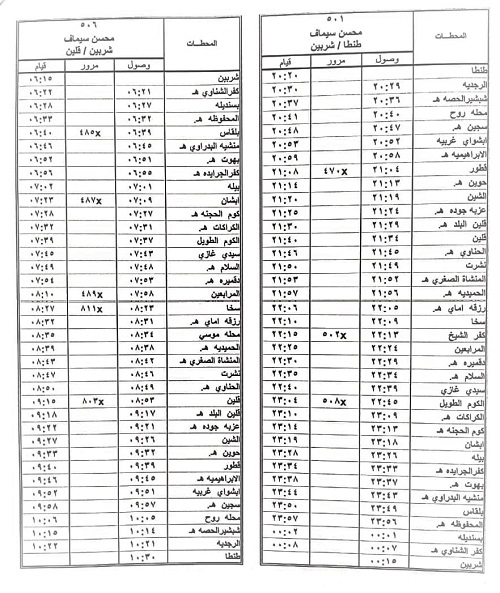 ٥٠١
محسن سيماف
طنطا / شربين
المحطات
وصول مرور قيام
طنطا ٢٠:٢٠
الرجديه ٢٠:٢٩ ٢٠:٣٠
شبشيرالحصه هـ ٢٠:٣٦ ٢٠:٣٧
محله روح ٢٠:٤٠ ٢٠:٤١
سجين هـ ٢٠:٤٧ ٢٠:٤٨
ابشواي غربيه ٢٠:٥٢ ٢٠:٥٣
الابراهيميه هـ ٢٠:٥٨ ٢٠:٥٩
قطور ٢١:٠٤ ٤٧٠x ٢١:٠٨
حوين هـ ٢١:١٣ ٢١:١٤
الشين ٢١:١٩ ٢١:٢٠
عزبه جوده هـ ٢١:٢٤ ٢١:٢٥
قلين البلد هـ ٢١:٢٩ ٢١:٣٠
قلين ٢١:٣٤ ٢١:٤٠
الحناوي هـ ٢١:٤٥ ٢١:٤٦
نشرت ٢١:٤٩ ٢١:٥٠
المنشاة الصغري هـ ٢١:٥٢ ٢١:٥٣
الحميديه هـ ٢١:٥٦ ٢١:٥٧
رزقه اماي هـ ٢٢:٠٥ ٢٢:٠٦
سخا ٢٢:٠٩ ٢٢:١٠
كفر الشيخ ٢٢:١٣ ٥٠٢x ٢٢:١٥
المرابعين ٢٢:٢٤ ٢٢:٢٥
دقميره هـ ٢٢:٢٩ ٢٢:٣٠
السلام هـ ٢٢:٣٤ ٢٢:٣٥
سيدي غازي ٢٢:٣٩ ٢٢:٤٠
الكوم الطويل ٢٢:٤٥ ٥٠٨x ٢٣:٠٤
الكراكات هـ ٢٣:٠٩ ٢٣:١٠
كوم الحجنه هـ ٢٣:١٣ ٢٣:١٤
ابشان ٢٣:١٨ ٢٣:١٩
بيله ٢٣:٢٦ ٢٣:٢٨
كفرالجرايده هـ ٢٣:٣٣ ٢٣:٣٤
بهوت هـ ٢٣:٣٧ ٢٣:٣٨
منشيه البدراوي هـ ٢٣:٤٣ ٢٣:٤٤
بلقاس ٢٣:٤٩ ٢٣:٥٠
المحفوظه هـ ٢٣:٥٦ ٢٣:٥٧
بسنديله ٠٠:٠١ ٠٠:٠٢
كفر الشناوي هـ ٠٠:٠٧ ٠٠:٠٨
شربين ٠٠:١٥
٥٠٦
محسن سيماف
شربين / قلين
المحطات
وصول مرور قيام
شربين ٠٦:١٥
كفرالشناوي هـ ٠٦:٢١ ٠٦:٢٢
بسنديله ٠٦:٢٧ ٠٦:٢٨
المحفوظه هـ ٠٦:٣٢ ٠٦:٣٣
بلقاس ٠٦:٣٩ ٤٨٥x ٠٦:٤٠
منشيه البدراوي هـ ٠٦:٤٥ ٠٦:٤٦
بهوت هـ ٠٦:٥١ ٠٦:٥٢
كفرالجرايده هـ ٠٦:٥٥ ٠٦:٥٦
بيله ٠٧:٠١ ٠٧:٠٢
ابشان ٠٧:٠٩ ٤٨٧x ٠٧:٢٣
كوم الحجنه هـ ٠٧:٢٧ ٠٧:٢٨
الكراكات هـ ٠٧:٣١ ٠٧:٣٢
الكوم الطويل ٠٧:٣٧ ٠٧:٣٩
سيدي غازي ٠٧:٤٣ ٠٧:٤٥
السلام هـ ٠٧:٤٨ ٠٧:٤٩
دقميره هـ ٠٧:٥٣ ٠٧:٥٤
المرابعين ٠٧:٥٨ ٤٨٩x ٠٨:١٠
سخا ٠٨:٢٣ ٨١١x ٠٨:٢٧
رزقه اماي هـ ٠٨:٣١ ٠٨:٣٢
محله موسي ٠٨:٣٤ ٠٨:٣٥
الحميديه هـ ٠٨:٣٨ ٠٨:٣٩
المنشاة الصغري هـ ٠٨:٤٢ ٠٨:٤٣
نشرت ٠٨:٤٦ ٠٨:٤٧
الحناوي هـ ٠٨:٤٩ ٠٨:٥٠
قلين ٠٨:٥٣ ٨٠٣x ٠٩:١٥
قلين البلد هـ ٠٩:١٧ ٠٩:١٨
عزبه جوده هـ ٠٩:٢١ ٠٩:٢٢
الشين ٠٩:٢٦ ٠٩:٢٧
حوين هـ ٠٩:٣٢ ٠٩:٣٣
قطور ٠٩:٣٩ ٠٩:٤٠
الابراهيميه هـ ٠٩:٤٥ ٠٩:٤٦
ابشواي غربيه ٠٩:٥١ ٠٩:٥٢
سجين هـ ٠٩:٥٧ ٠٩:٥٨
محله روح ١٠:٠٥ ١٠:٠٦
شبشيرالحصه هـ ١٠:١٤ ١٠:١٥
الرجديه ١٠:٢١ ١٠:٢٢
طنطا ١٠:٣٠